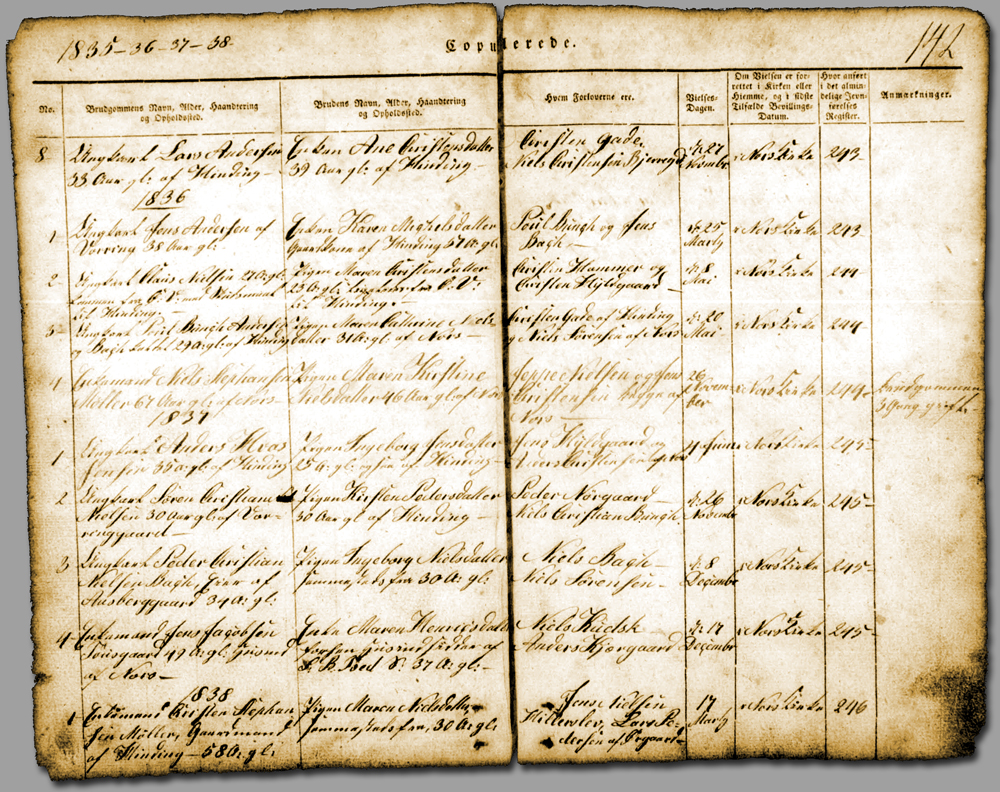 1835-36-37-38-
Copulerede.
142
No.
Brudgommens Navn, Alder, Haandtering
og Opholdssted.
Brudens Navn, Alder, Haandtering
og Opholdssted.
Hvem Forloverne ere.
Vielses-
Dagen.
Om Vielsen er for-
rettet i Kirken eller
Hiemme, og i sidste
Tilfælde Bevillings-
Datum.
Hvor anført
i det almin-
delige Jevn-
førelses
Register.
Anmærkninger.
8
Ungkarl Lars Andersen
33 Aar gl: af Hinding-
Enken Ane Christensdatter
39 Aar gl: af Hinding-
Christen Gade,
Niels Christensen Bjerregd
27
i Nors Kirke
243-
1836
1
Ungkarl Jens Andersen af
Vorring 38 Aar gl:
Enken Karen Michelsdatter
af Hinding 57 A: gl:
Poul Bungh og Jens
Bagh-
25
Marty
i Nors Kirke
243
2
Ungkarl Claus Nielsen 27 A: gl:
til Hinding-
Pigen Maren Christensdatter
25 A: gl:
til Hinding-
Christen Hammer og
Christen Hyldgaard-
8
Mai
i Nors Kirke
244
3-
Ungkarl Poul Bungh Anders
29 A: gl: af Hinding
Pigen Maren Cathrine Niels
datter 31 A: gl: af Nors-
Christen Gade af Hinding
og Niels Sørensen af Nors
20
Mai
i Nors Kirke
244-
4
Enkemand Niels Stephansen
Møller 67 Aar gl: af Nors-
Pigen Maren Kirstine
Nielsdatter 46 Aar gl: af Nors
Jeppe Nielsen og Jens
Christensen begge af
Nors-
26
Novem
ber
i Nors Kirke
244-
Brudgommen
3 Gang gift.
1837
1
Ungkarl Anders Hvas
Jensen 33 A: gl: af Hinding
Pigen Ingeborg Jensdatter
25 A: gl: af Hinding-
Jens Hyldgaard og
Anders Christensen
4 Juni
i Nors Kirke
245-
2
Ungkarl Søren Christian
Nielsen 30 Aar gl: af Vor-
ringgaard-
Pigen Kirsten Pedersdatter
30 Aar gl: af Hinding-
Peder Nørgaard-
Niels Christian Bungh.
26
Novembr
i Nors Kirke
245-
3
Ungkarl Peder Christian
Nielsen Bagh, af
Aasberggaard 34 A: gl:
Pigen Ingeborg Nielsdatter
sammestedsfra 30 A: gl:
Niels Bagh-
Niels Sørensen-
8
Decembr
i Nors Kirke
245-
4-
Enkemand Jens Jacobsen
49 A: gl:
af Nors-
Enke Maren Henricsdatter
37 A: gl:-
Niels Kidsk
Anders Kjærgaard
17
Decembr
i Nors Kirke
245-
1838
1
Enkemand Christen Stephan
sen Møller, Gaardmand
af Hinding- 58 A: gl:
Pigen Maren Nielsdatter
sammestedsfra, 30 A: gl:
Jens Nielsen
Hillerslev, Lars Pe-
dersen af
17
Marty
i Nors Kirke
246